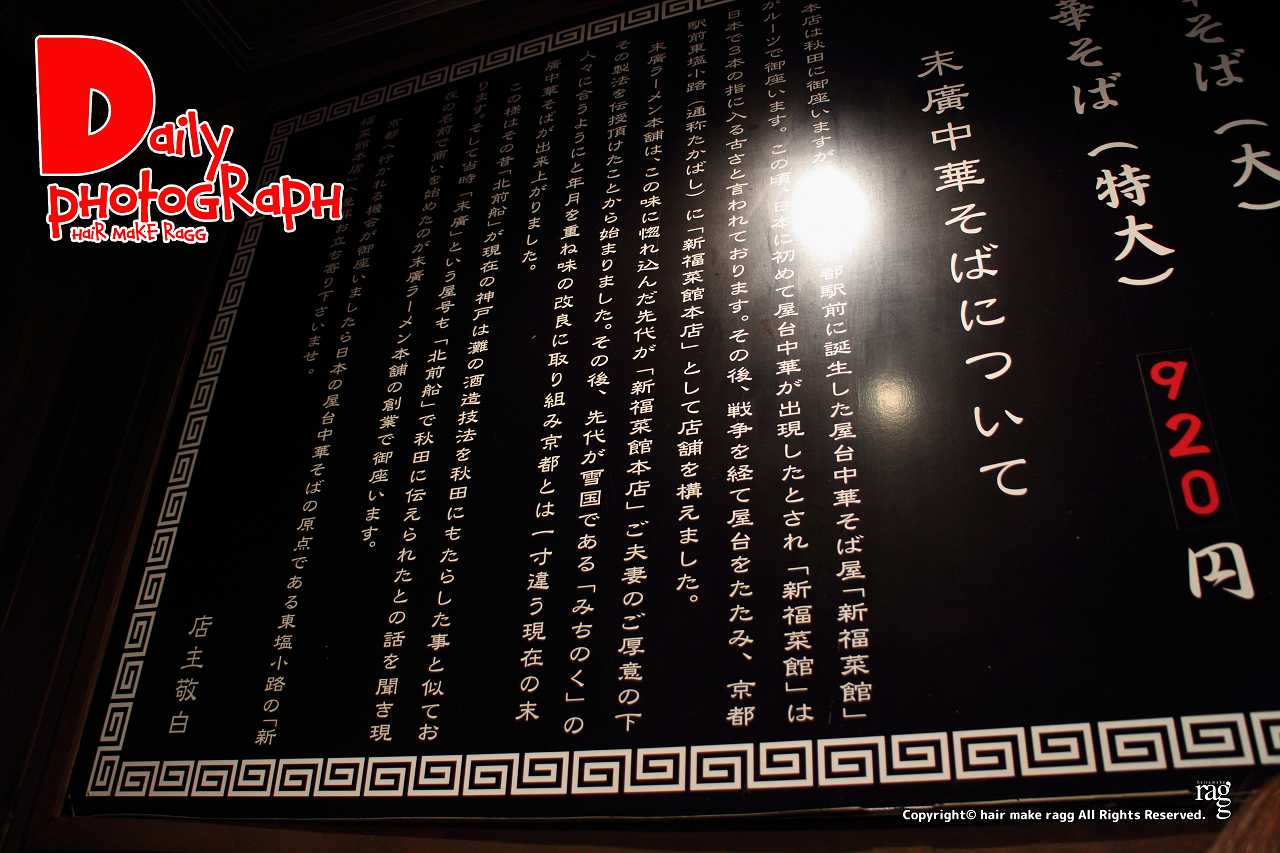 Daily
photograph
HaiR MaKE RaGG
そば（大）
華そば（特大）
920円
末廣中華そばについて
本店は秋田に御座いますが
都駅前に誕生した屋台中華そば屋「新福菜館」
がルーツで御座います。この頃、日本に初めて屋台中華が出現したとされ「新福菜館」は
日本で３本の指に入る古さと言われております。その後、戦争を経て屋台をたたみ、京都
駅前東塩小路（通称たかばし）に「新福菜館本店」として店舗を構えました。
末廣ラーメン本舗は、この味に惚れ込んだ先代が「新福菜館本店」ご夫妻のご厚意の下
その製法を伝授頂けたことから始まりました。その後、先代が雪国である「みちのく」の
人々に合うようにと年月を重ね味の改良に取り組み京都とは一寸違う現在の末
廣中華そばが出来上がりました。
この様はその昔「北前船」が現在の神戸は灘の酒造技法を秋田にもたらした事と似てお
ります。そして当時「末廣」という屋号も「北前船」で秋田に伝えられたとの話を聞き現
在の名前で商いを始めたのが末廣ラーメン本舗の創業で御座います。
京都へ行かれる機会が御座いましたら日本の屋台中華そばの原点である東塩小路の「新
福菜館本店」へ是非お立ち寄り下さいませ。
店主敬白
hair&make
ragg
Copyright© hair make ragg All Rights Reserved.